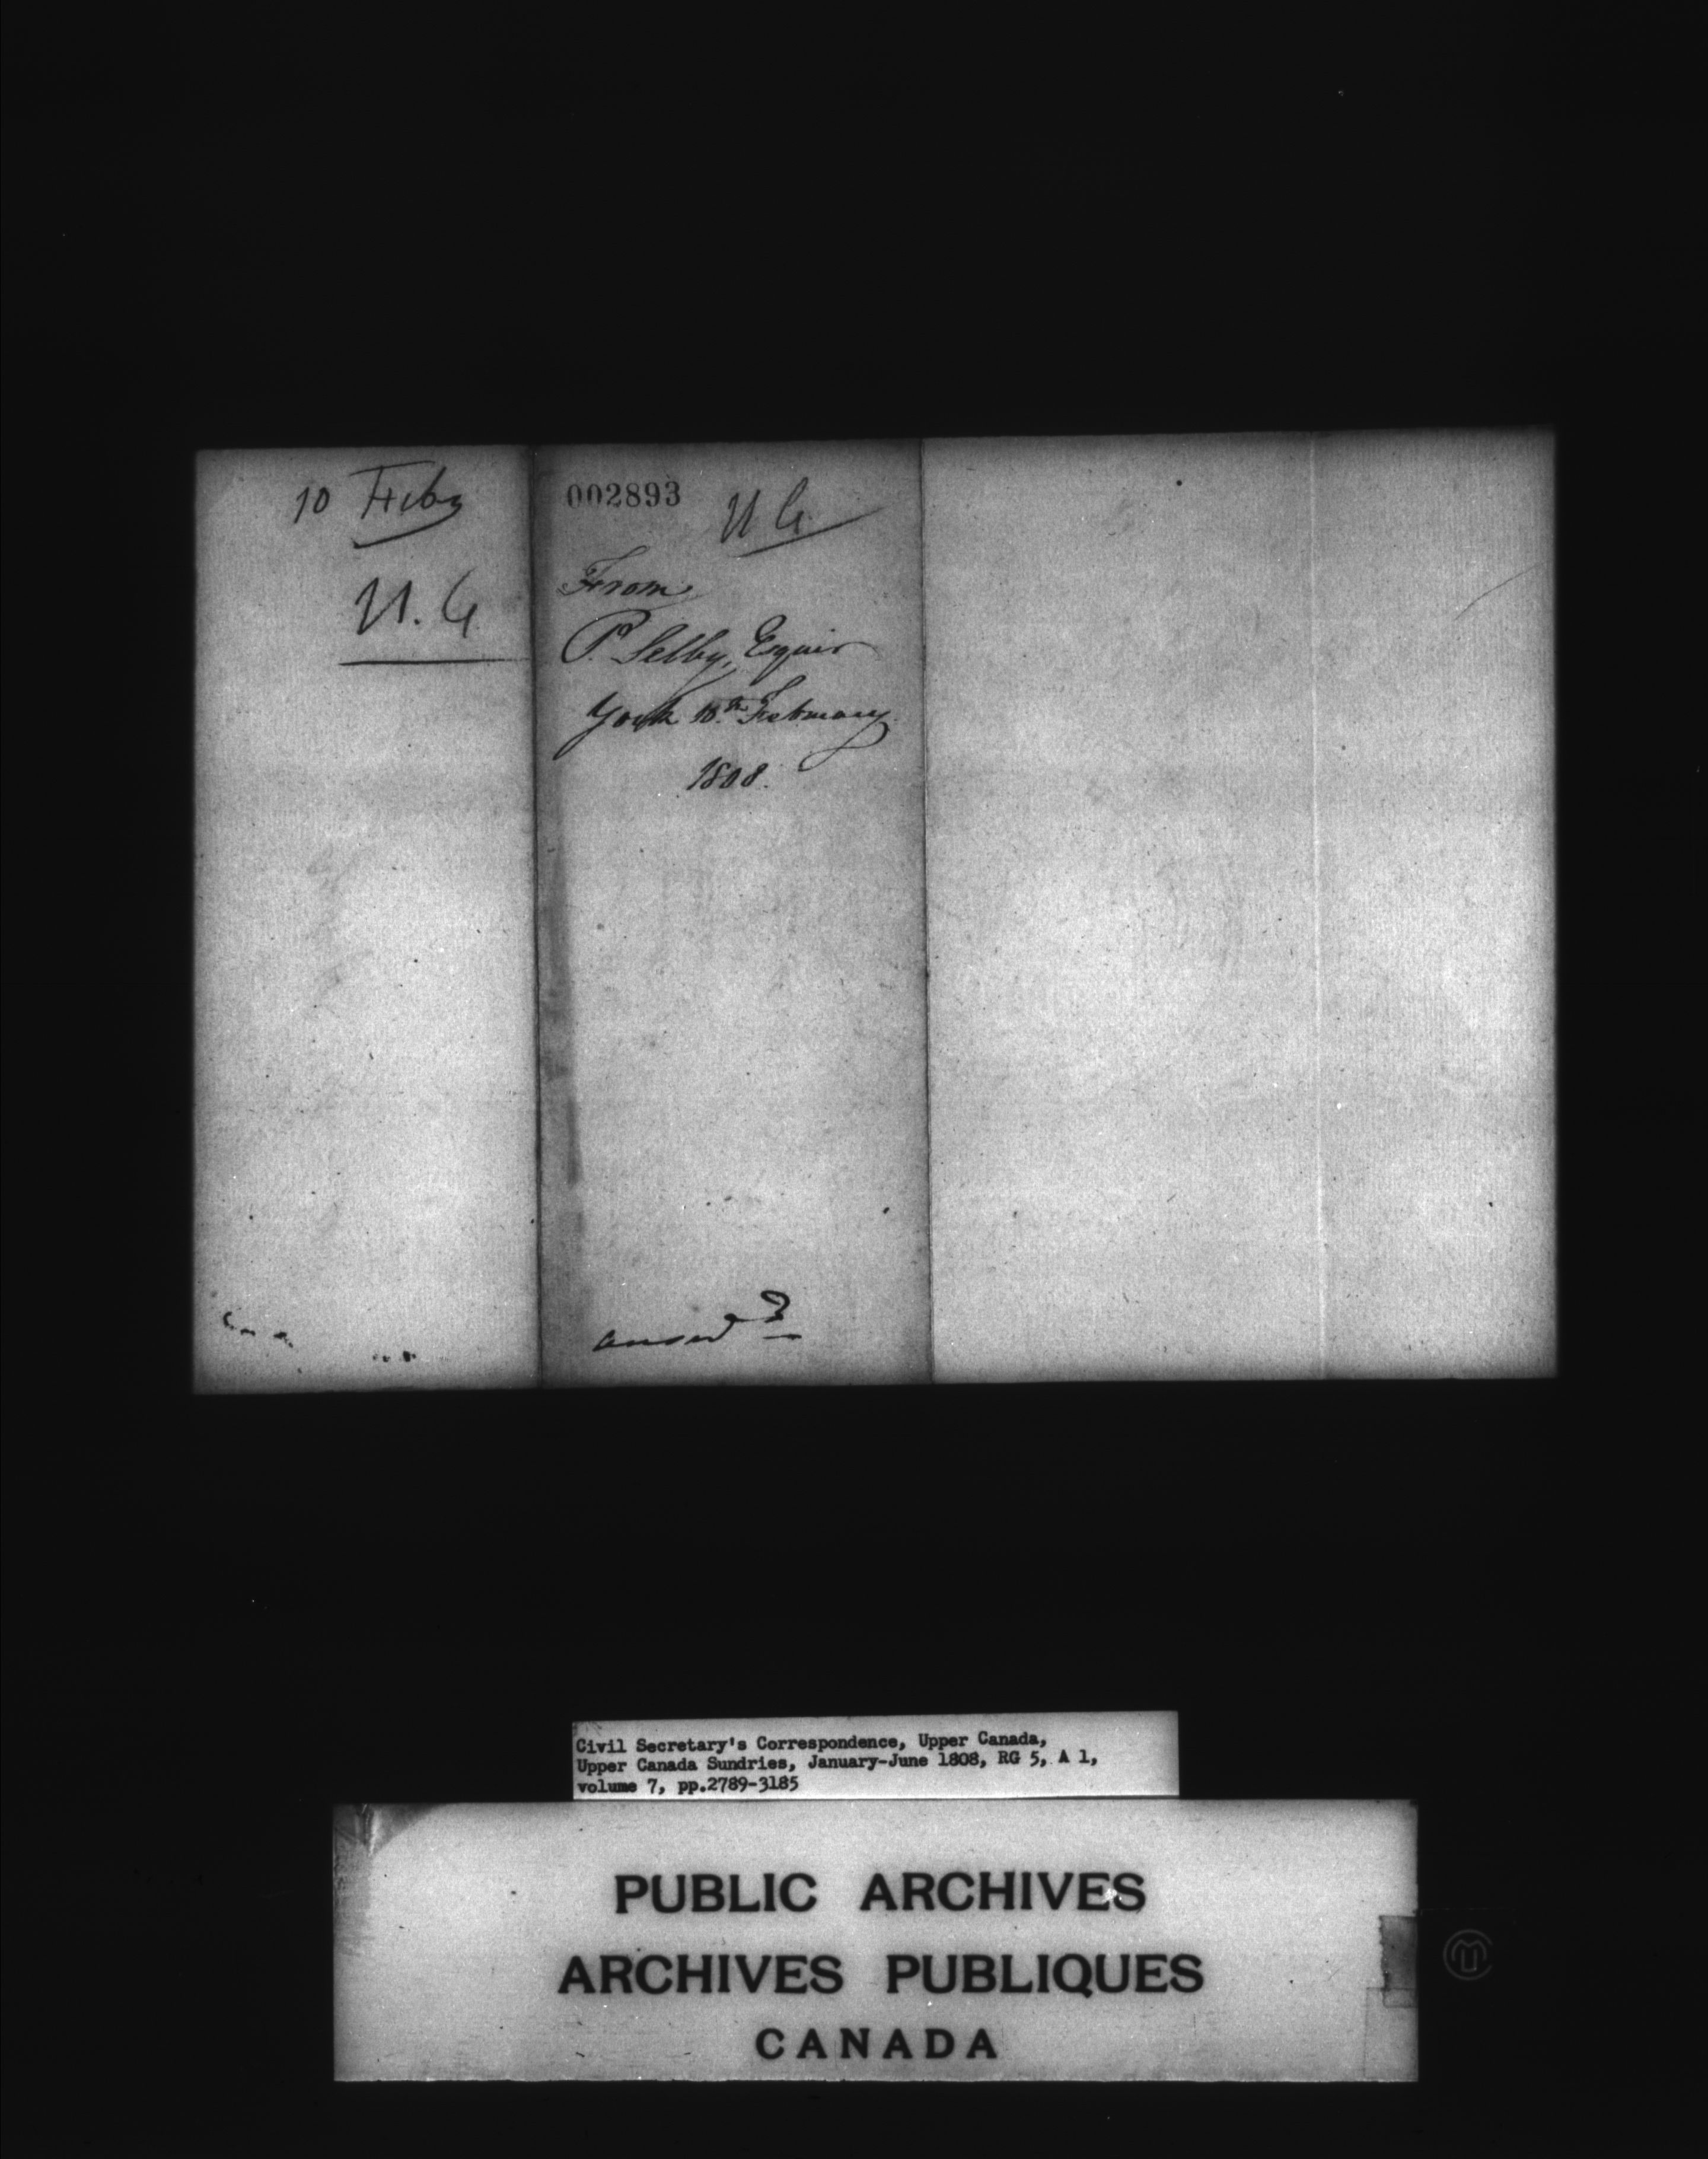 10 Feby
U.C.
002893
U C.
From
P. Selby, Esquir
York 10.th February
1808.
answd
Civil Secretary's Correspondence, Upper Canada,
Upper Canada Sundries, January-June 1808, RG 5, A 1,
volume 7, pp.2789-3185
PUBLIC ARCHIVES
ARCHIVES PUBLIQUES
CANADA